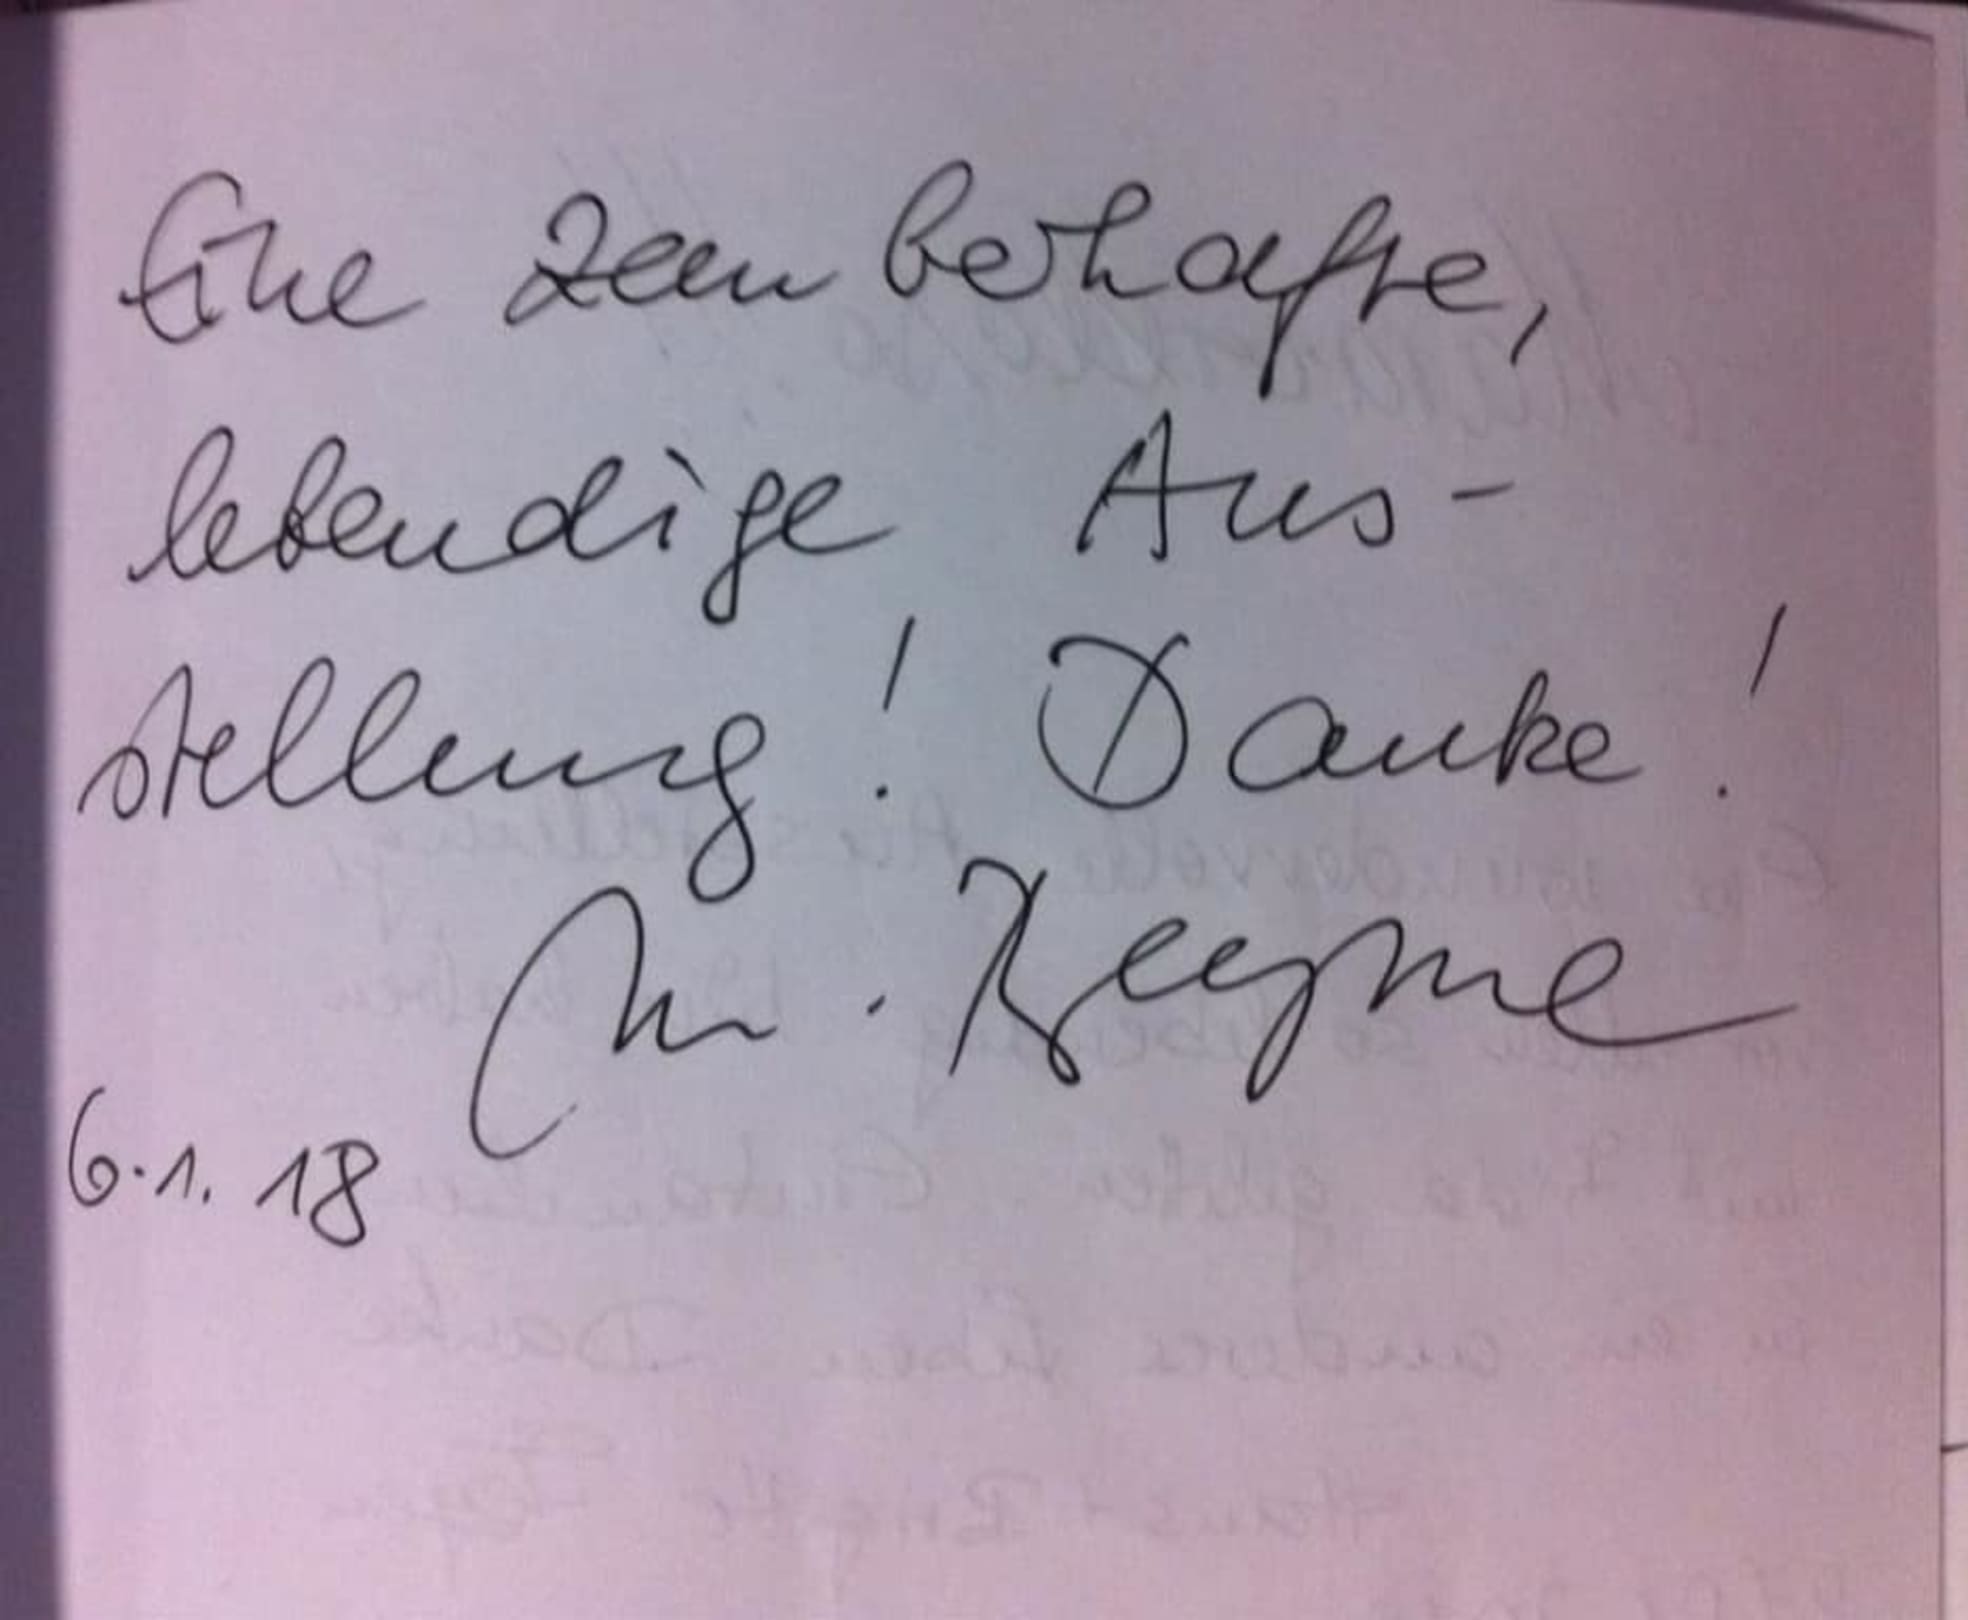 Eine zauberhafte,
lebendige Aus-
stellung! Danke!
M.
6.1.18